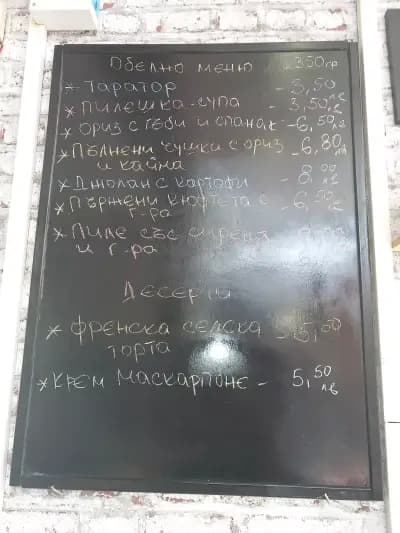 Обедно меню 350гр
* Таратор - 3,50 лв
* Пилешка супа - 3,50 лв
* Ориз с гъби и спанак - 6,50 лв
* Пълнени чушки с ориз - 6,80 лв
и кайма
* Джолан с картофи - 8,00 лв
* Пържени кюфтета с - 6,50 лв
г-ра
* Пиле със
и г-ра
Десерти
* Френска селска - 5,00
торта
* Крем Маскарпоне - 5,50 лв